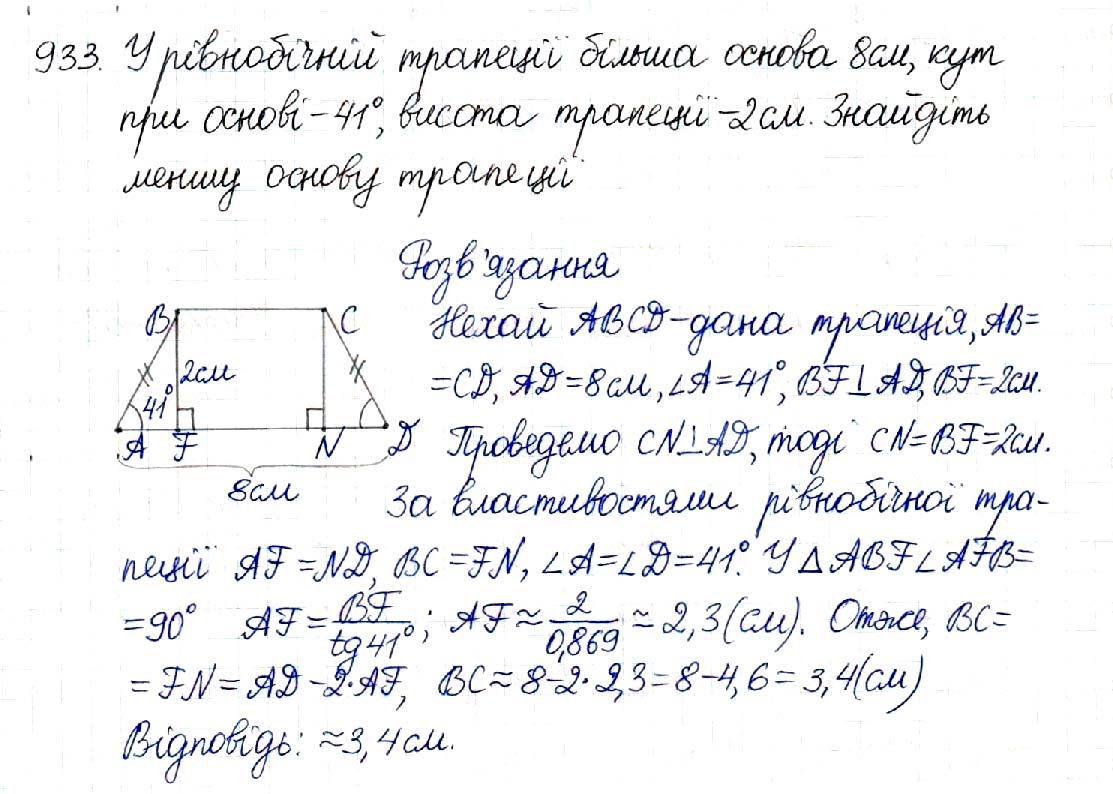 933. У рівнобічній трапеції більша основа 8см, кут
при основі - 41°, висота трапеції - 2см. Знайдіть
меншу основу трапеції
Розв'язання
B
C
2см
41°
A F N D
8см
Нехай ABCD - дана трапеція, AB=
=CD, AD=8см, ∠A=41°, BF⊥AD, BF=2см.
Проведемо CN⊥AD, тоді CN=BF=2см.
За властивостями рівнобічної тра-
пеції AF=ND, BC=FN, ∠A=∠D=41°. У △ABF ∠AFB=
=90° AF = BF/tg41°; AF ≈ 2/0,869 ≈ 2,3(см). Отже, BC=
= FN = AD - 2·AF, BC ≈ 8-2·2,3 = 8-4,6 = 3,4(см)
Відповідь: ≈3,4см.